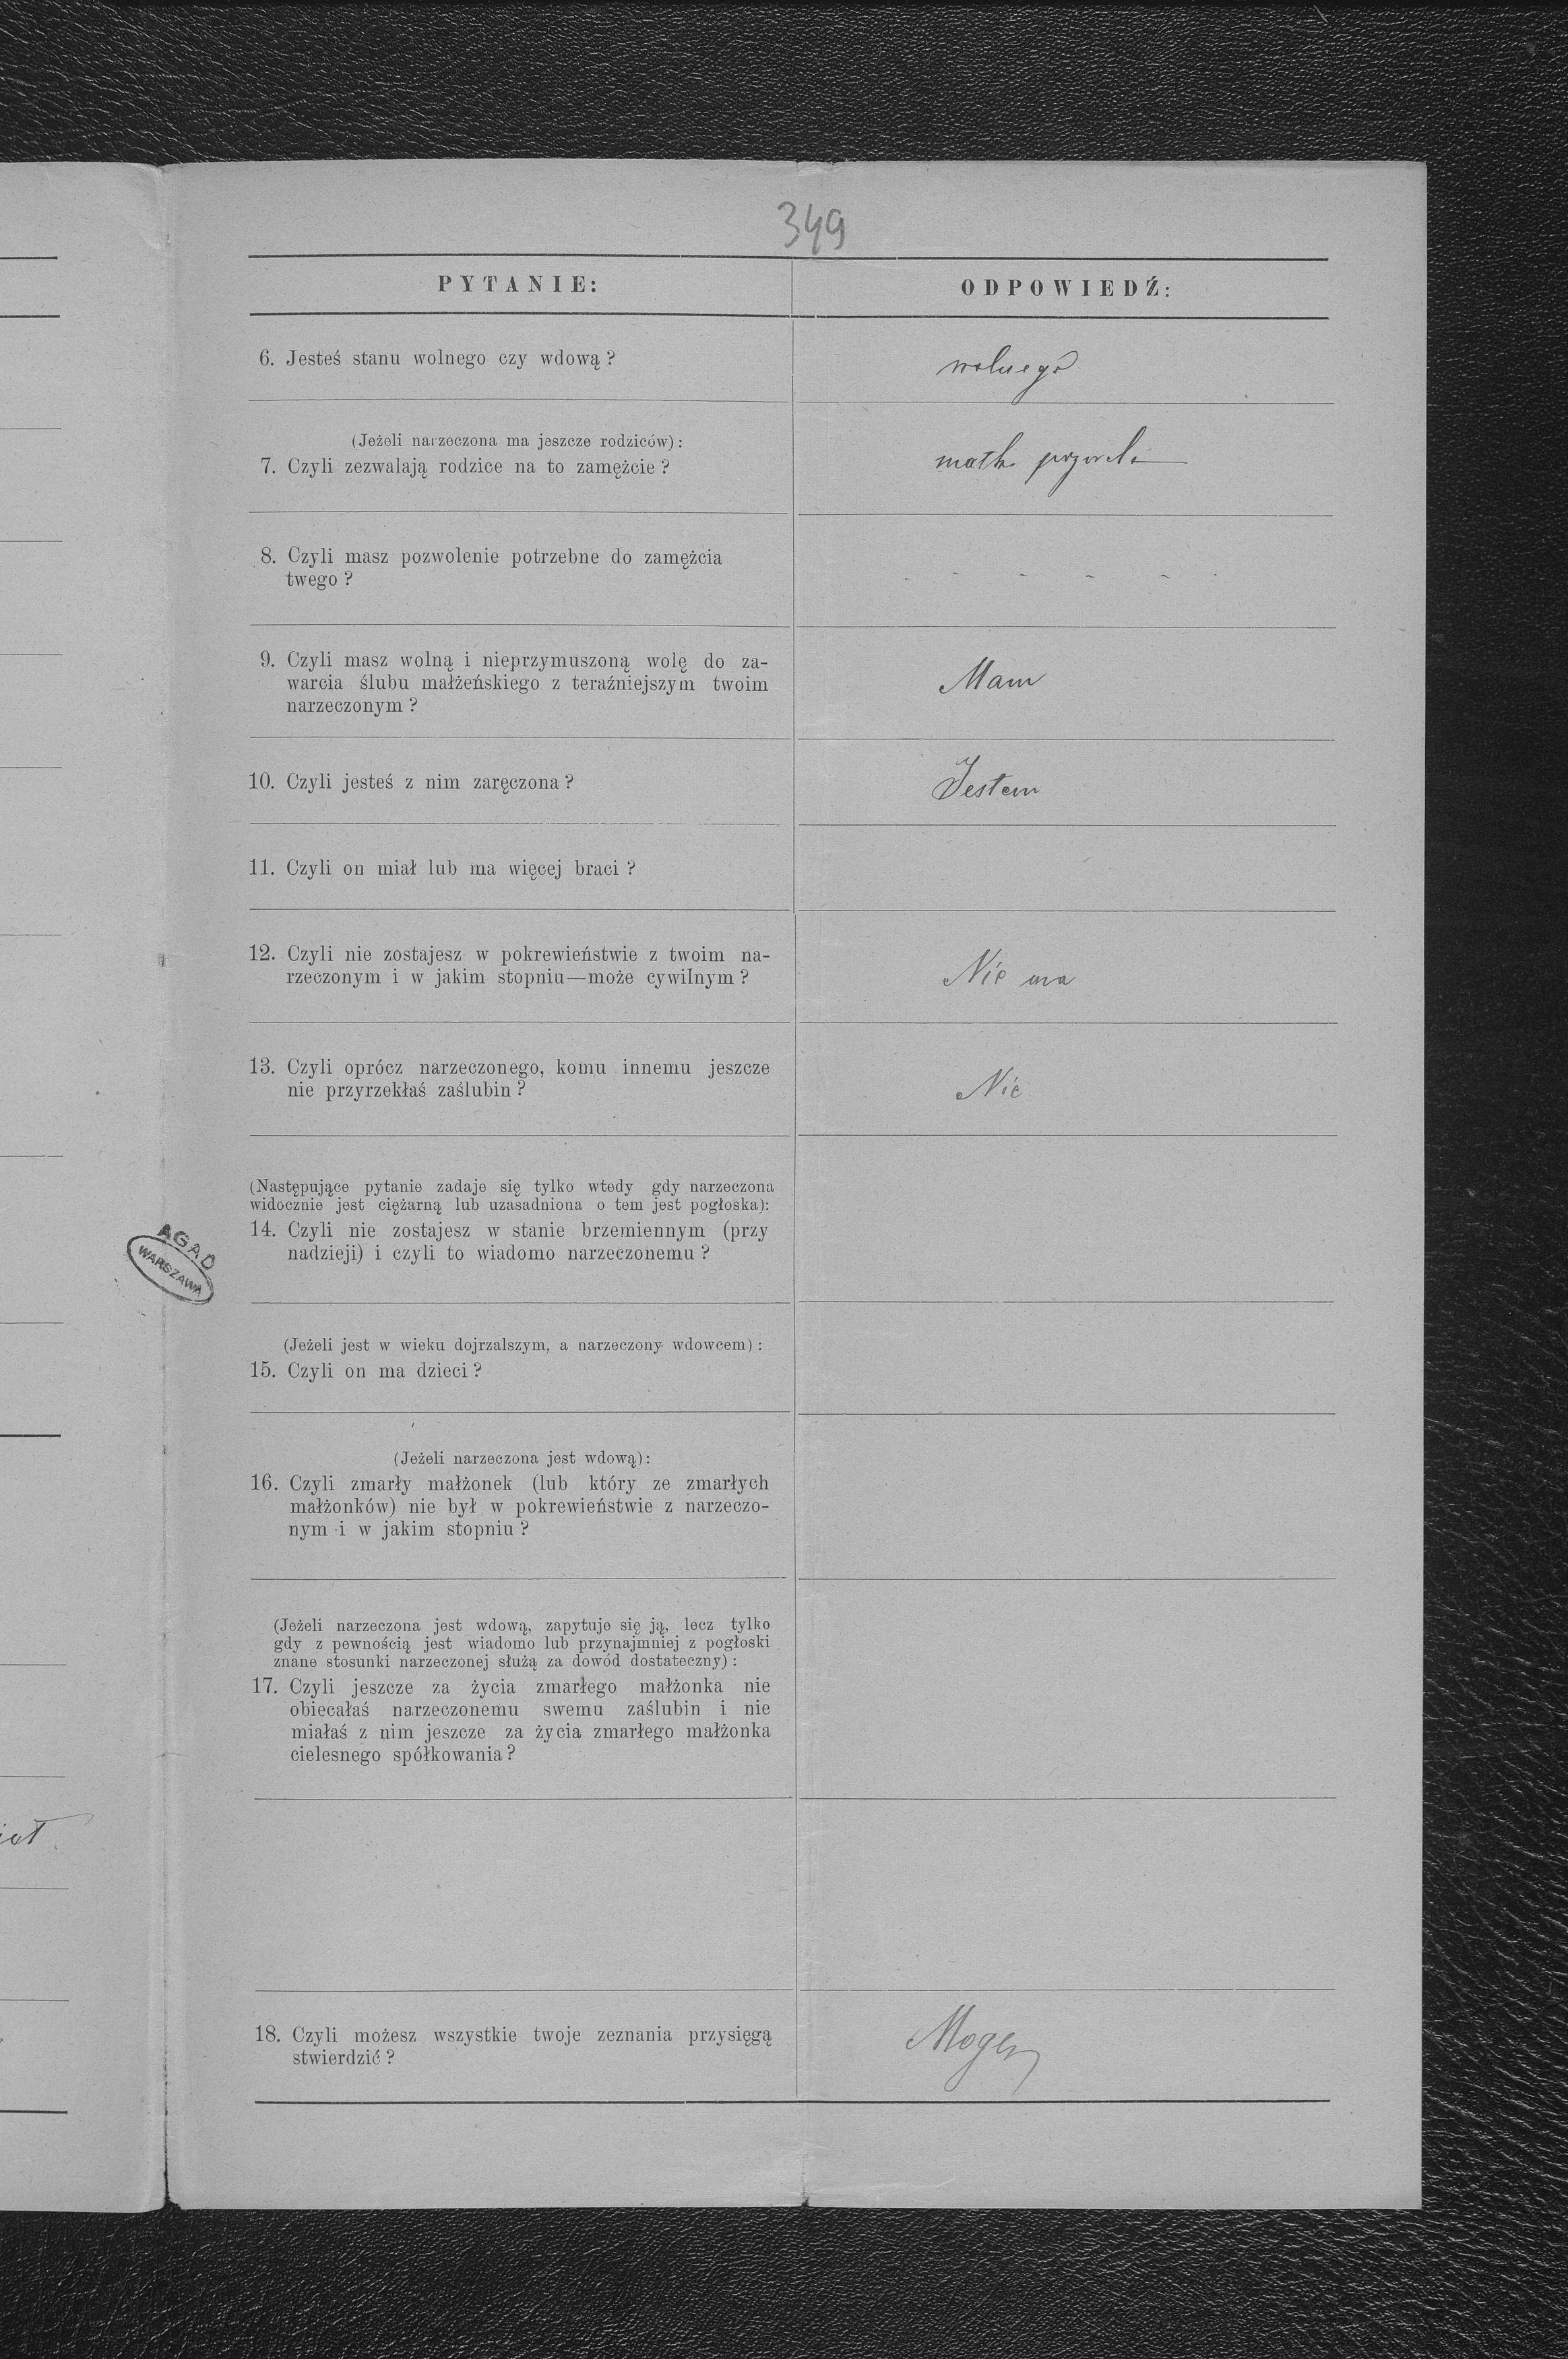 349
PYTANIE:
ODPOWIEDŹ:
6. Jesteś stanu wolnego czy wdową?
wolnego
(Jeżeli narzeczona ma jeszcze rodziców):
7. Czyli zezwalają rodzice na to zamężcie?
matka
8. Czyli masz pozwolenie potrzebne do zamężcia
twego?
- - - - -
9. Czyli masz wolną i nieprzymuszoną wolę do za-
warcia ślubu małżeńskiego z teraźniejszym twoim
narzeczonym?
Mam
10. Czyli jesteś z nim zaręczona?
Jestem
11. Czyli on miał lub ma więcej braci?
12. Czyli nie zostajesz w pokrewieństwie z twoim na-
rzeczonym i w jakim stopniu—może cywilnym?
Nie ma
13. Czyli oprócz narzeczonego, komu innemu jeszcze
nie przyrzekłaś zaślubin?
Nie
(Następujące pytanie zadaje się tylko wtedy gdy narzeczona
widocznie jest ciężarną lub uzasadniona o tem jest pogłoska):
14. Czyli nie zostajesz w stanie brzemiennym (przy
nadzieji) i czyli to wiadomo narzeczonemu?
AGAD
WARSZAWA
(Jeżeli jest w wieku dojrzalszym, a narzeczony wdowcem):
15. Czyli on ma dzieci?
(Jeżeli narzeczona jest wdową):
16. Czyli zmarły małżonek (lub który ze zmarłych
małżonków) nie był w pokrewieństwie z narzeczo-
nym i w jakim stopniu?
(Jeżeli narzeczona jest wdową, zapytuje się ją, lecz tylko
gdy z pewnością jest wiadomo lub przynajmniej z pogłoski
znane stosunki narzeczonej służą za dowód dostateczny):
17. Czyli jeszcze za życia zmarłego małżonka nie
obiecałaś narzeczonemu swemu zaślubin i nie
miałaś z nim jeszcze za życia zmarłego małżonka
cielesnego spółkowania?
18. Czyli możesz wszystkie twoje zeznania przysięgą
stwierdzić?
Mogę